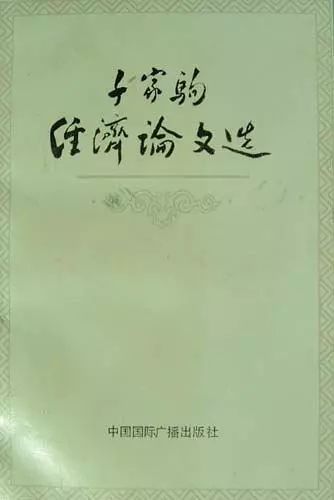 千家驹
经濟论文选
中国国际广播出版社